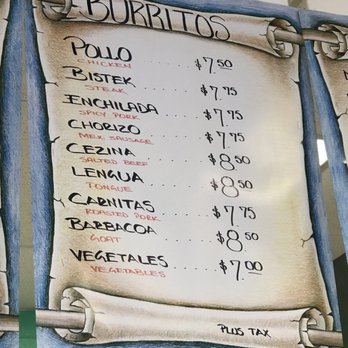 BURRITOS
POLLO . . . . . . . $7.50
CHICKEN
BISTEK . . . . . . $7.75
STEAK
ENCHILADA . . . . $7.75
SPICY PORK
CHORIZO . . . . . $7.75
MEX SAUSAGE
CEZINA . . . . . . $8.50
SALTED BEEF
LENGUA . . . . . . $8.50
TONGUE
CARNITAS . . . . . $7.75
ROASTED PORK
BARBACOA . . . . . $8.50
GOAT
VEGETALES . . . . $7.00
VEGETABLES
PLUS TAX